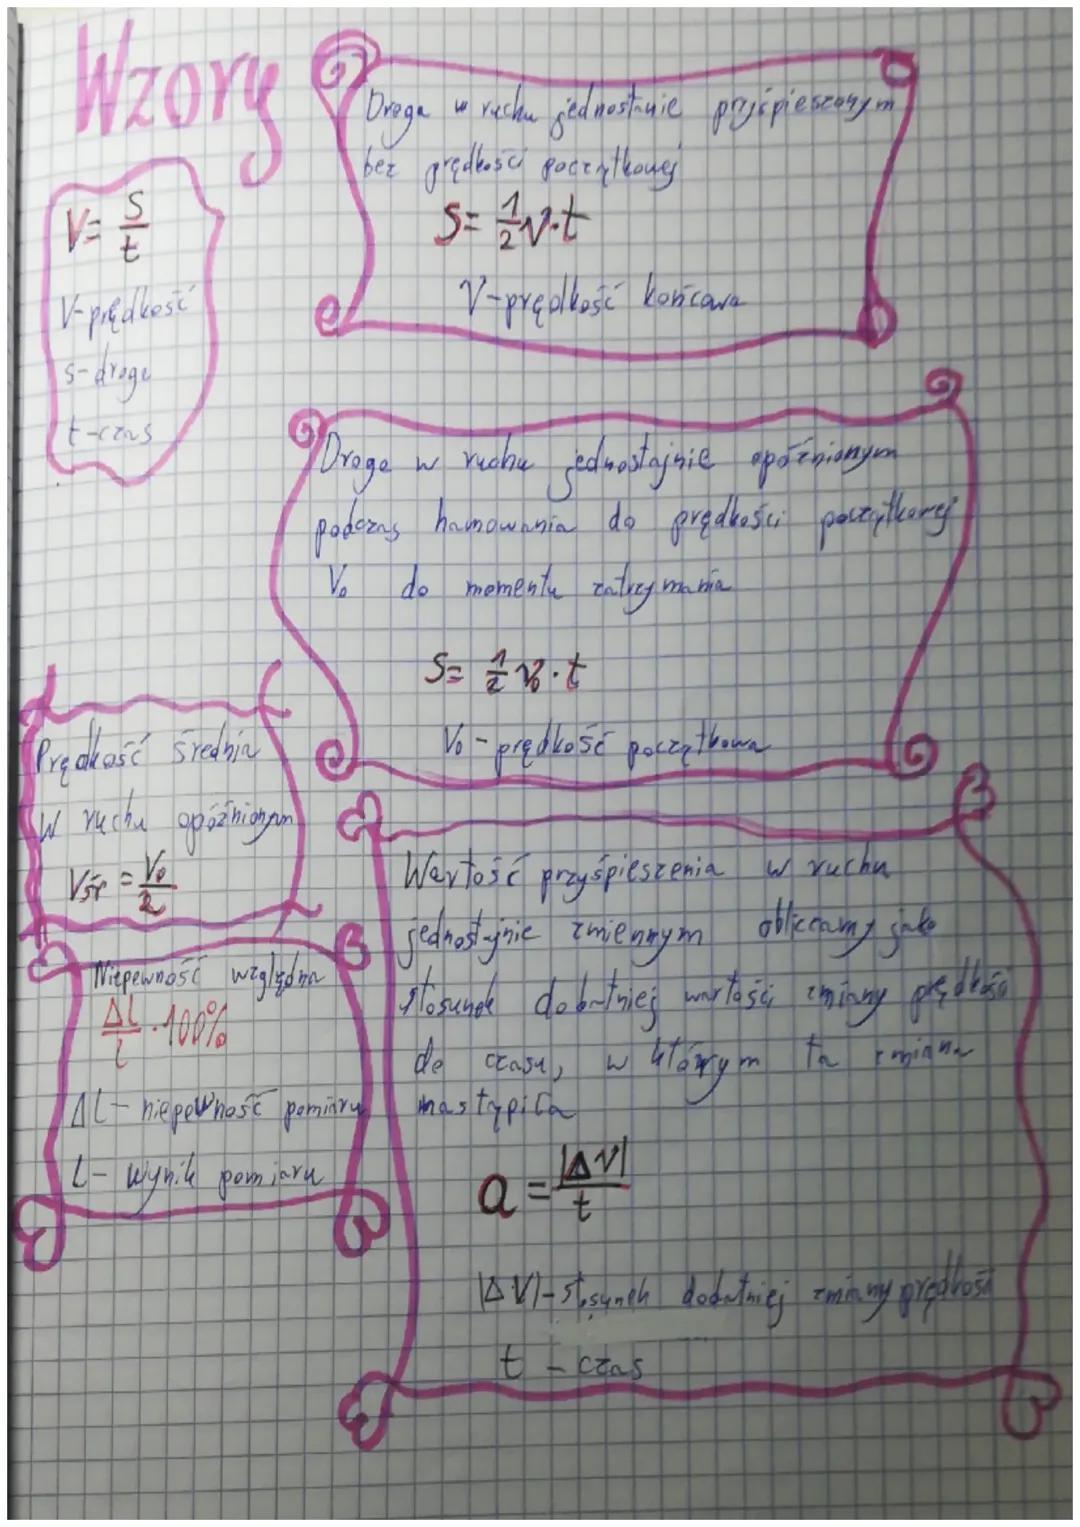 Wzory
V = s/t
V-prędkość
s-droga
t-czas
Droga w ruchu jednostajnie przyśpieszonym
bez prędkości początkowej
S = 1/2 v·t
V-prędkość końcowa
Droga w ruchu jednostajnie opóźnionym
podczas hamowania do prędkości początkowej
V₀ do momentu zatrzymania
S = 1/2 v₀·t
V₀ - prędkość początkowa
Prędkość średnia
W ruchu opóźnionym
Vśr = V₀/2
Niepewność względna
ΔL/l · 100%
ΔL - niepewność pomiaru
L - wynik pomiaru
Wartość przyśpieszenia w ruchu
jednostajnie zmiennym obliczamy jako
stosunek dodatniej wartości zmiany prędkości
do czasu, w którym ta zmiana
nastąpiła
a = |ΔV|/t
|ΔV| - stosunek dodatniej zmiany prędkości
t - czas